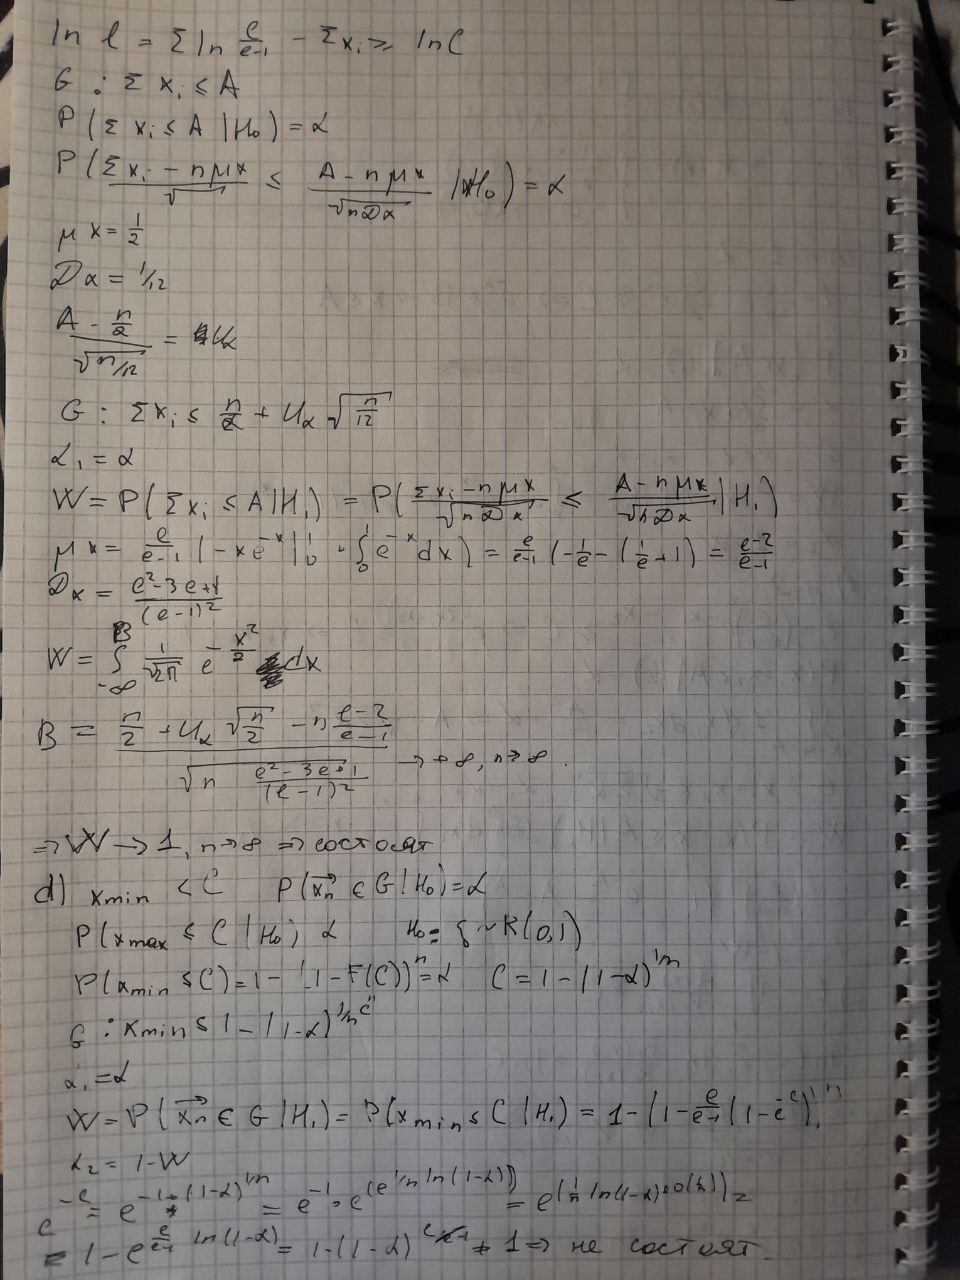 ln l = Σ ln e/(e-1) - Σx_i ≥ ln C
G : Σ x_i ≤ A
P(Σ x_i ≤ A | H₀) = α
P((Σx_i - nμx)/√ ≤ (A - nμx)/√(nDx) | H₀) = α
μx = 1/2
Dx = 1/12
(A - n/2)/√(n/12) = U_α
G : Σx_i ≤ n/2 + U_α √(n/12)
α₁ = α
W = P(Σx_i ≤ A | H₁) = P((Σx_i - nμx)/√(nDx) ≤ (A - nμx)/√(nDx) | H₁)
μx = e/(e-1) (-xe^(-x)|₀¹ + ∫₀¹ e^(-x) dx) = e/(e-1) (-1/e - (1/e + 1)) = (e-2)/(e-1)
Dx = (e² - 3e + 1)/(e-1)²
W = ∫_(-∞)^B 1/√(2π) e^(-x²/2) dx
B = (n/2 + U_α √(n/2) - n (e-2)/(e-1))/√(n (e² - 3e + 1)/(e-1)²) → +∞, n→∞.
⇒ W → 1, n→∞ ⇒ состоят
d) x_min < C P(x⃗_n ∈ G | H₀) = α
P(x_max ≤ C | H₀) α H₀ = ξ ~ R(0,1)
P(x_min ≤ C) = 1 - (1 - F(C))^n = α C = 1 - (1-α)^(1/n)
G : x_min ≤ 1 - (1-α)^(1/n) "C"
α₁ = α
W = P(x⃗_n ∈ G | H₁) = P(x_min ≤ C | H₁) = 1 - (1 - e/(e-1) (1 - e^(-c)))^n
α₂ = 1 - W
e^(-c) = e^(-1+(1-α)^(1/n)) = e^(-1) · e^(e^(1/n ln(1-α))) = e^(1/n ln(1-α) + o(1/n)) =
= 1 - e^(e/(e-1) ln(1-α)) = 1 - (1-α)^(e/(e-1)) ≠ 1 ⇒ не состоят.